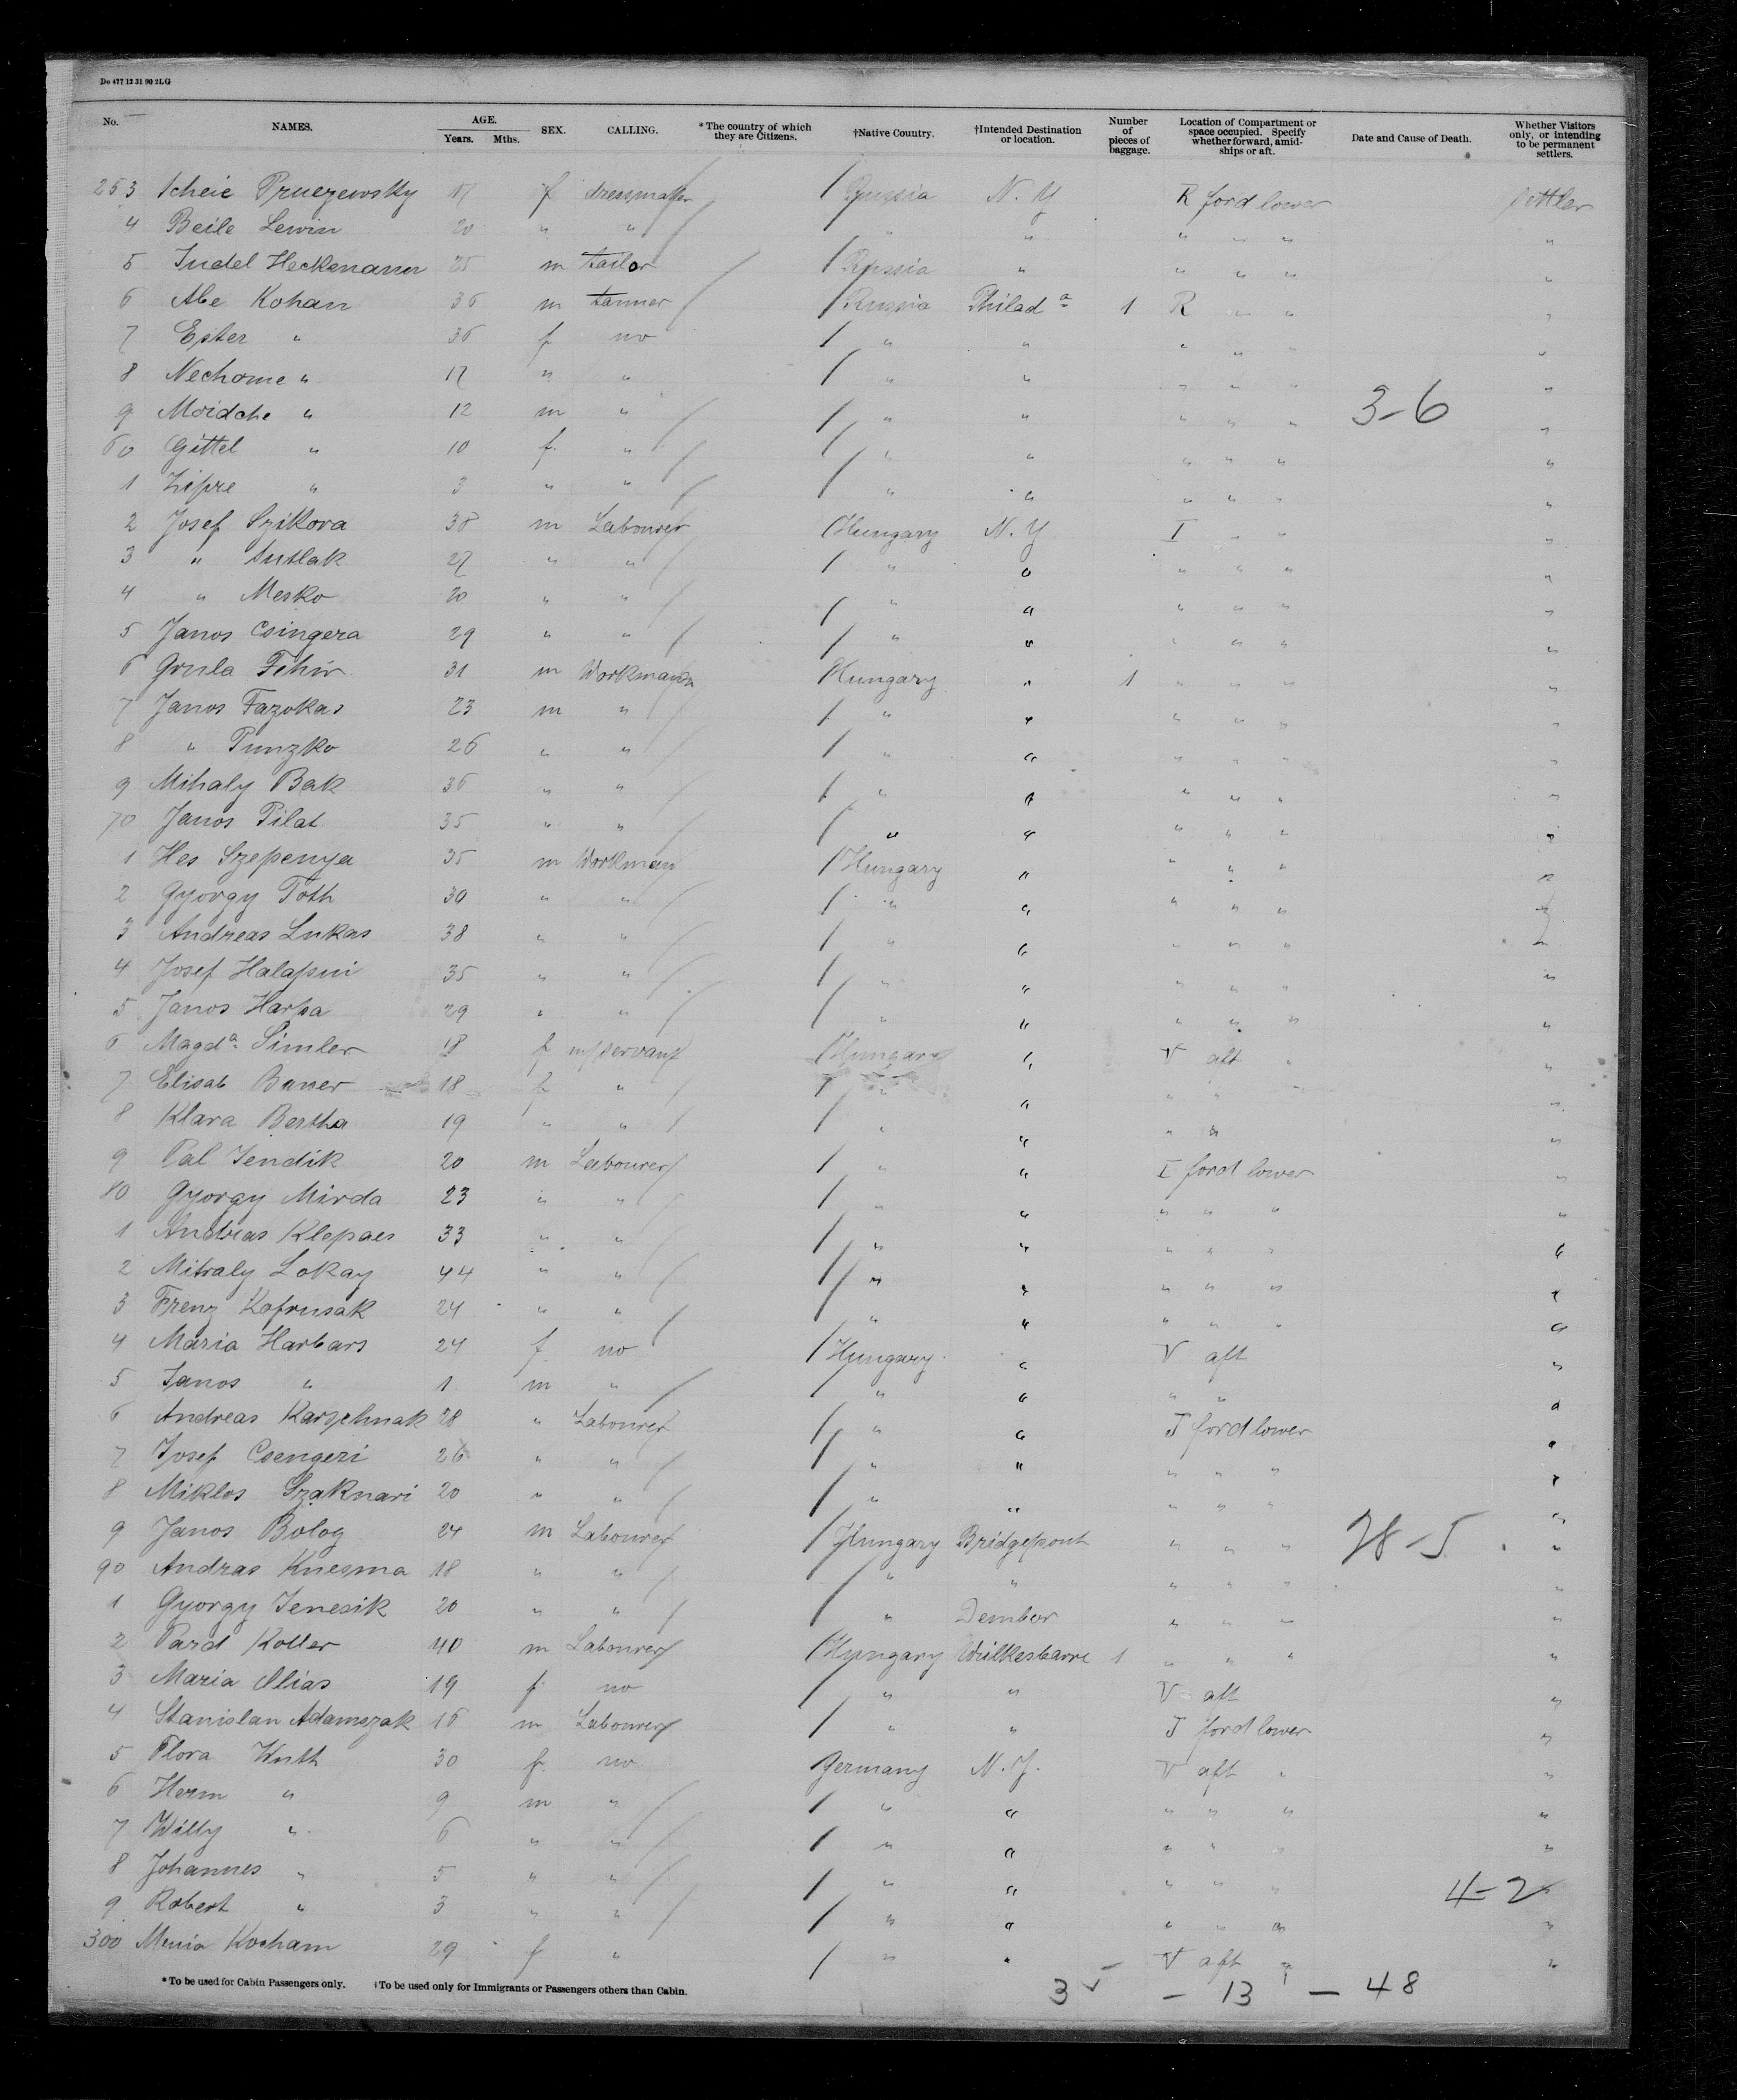 Do 477 12 31 90 2LG
No. NAMES. AGE. Years. Mths. SEX. CALLING. *The country of which they are Citizens. †Native Country. †Intended Destination or location. Number of pieces of baggage. Location of Compartment or space occupied. Specify whether forward, amidships or aft. Date and Cause of Death. Whether Visitors only, or Intending to be permanent settlers.
253 Scheie Pruezewsky 17 f dressmaker Russia N.Y R ford lower settler
4 Beile Lewin 20 " " " " " " " "
5 Judel Heckmann 25 m tailor Russia " " " " "
6 Abe Kohan 36 m tanner Russia Philada 1 R " " "
7 Ester " 36 f no " " " " " "
8 Nechome " 17 " " " " " " " "
9 Moidche " 12 m " " " " " " 3-6 "
60 Gittel " 10 f " " " " " " "
1 Zipre " 3 " " " " " " " "
2 Josef Szikora 38 m Labourer Hungary N.Y I " " "
3 " Antlak 27 " " " " " " " "
4 " Mesko 20 " " " " " " " "
5 Janos Csingera 29 " " " " " " " "
6 Gyula Fehir 31 m Workman Hungary " 1 " " " "
7 Janos Fazokas 23 m " " " " " " "
8 " Punzko 26 " " " " " " " "
9 Mihaly Bak 36 " " " " " " " "
70 Janos Pilat 35 " " " " " " " "
1 Hes Szepenya 35 m Workman Hungary " " " " "
2 Gyorgy Toth 30 " " " " " " " "
3 Andreas Lukas 38 " " " " " " " "
4 Josef Halapini 35 " " " " " " " "
5 Janos Harpa 29 " " " " " " " "
6 Magda Simler 18 f servant Hungary " V aft " "
7 Elisab Bauer 18 f " " " " " "
8 Klara Bertha 19 " " " " " " "
9 Pal Jendik 20 m Labourer " " I ford lower "
80 Gyorgy Mirda 23 " " " " " " " "
1 Andras Klepaes 33 " " " " " " " "
2 Mitraly Lokay 44 " " " " " " " "
3 Frenz Kofrusak 24 " " " " " " " "
4 Maria Harbars 24 f no Hungary " V aft "
5 Janos " 1 m " " " " " "
6 Andreas Karzchnak 28 " Labourer " " I ford lower "
7 Josef Csengeri 26 " " " " " " " "
8 Miklos Szaknari 20 " " " " " " " "
9 Janos Bolog 24 m Labourer Hungary Bridgeport " " " 28-5 "
90 Andras Knesma 18 " " " " " " " "
1 Gyorgy Jenesik 20 " " " " " " "
2 Koller 40 m Labourer Hungary Wilkesbarre 1 " " " "
3 Maria Olias 19 f no " " V aft "
4 Stanislan Adamszak 16 m Labourer " " I ford lower "
5 Flora Wuth 30 f no Germany N.Y. V aft " "
6 Herm " 9 m " " " " " " "
7 Willy " 6 " " " " " " " "
8 Johannes " 5 " " " " " " " 4-2 "
9 Robert " 3 " " " " " " " "
300 Kocham 29 f " " " V aft " "
*To be used for Cabin Passengers only. †To be used only for Immigrants or Passengers others than Cabin.
35 - 13 - 48